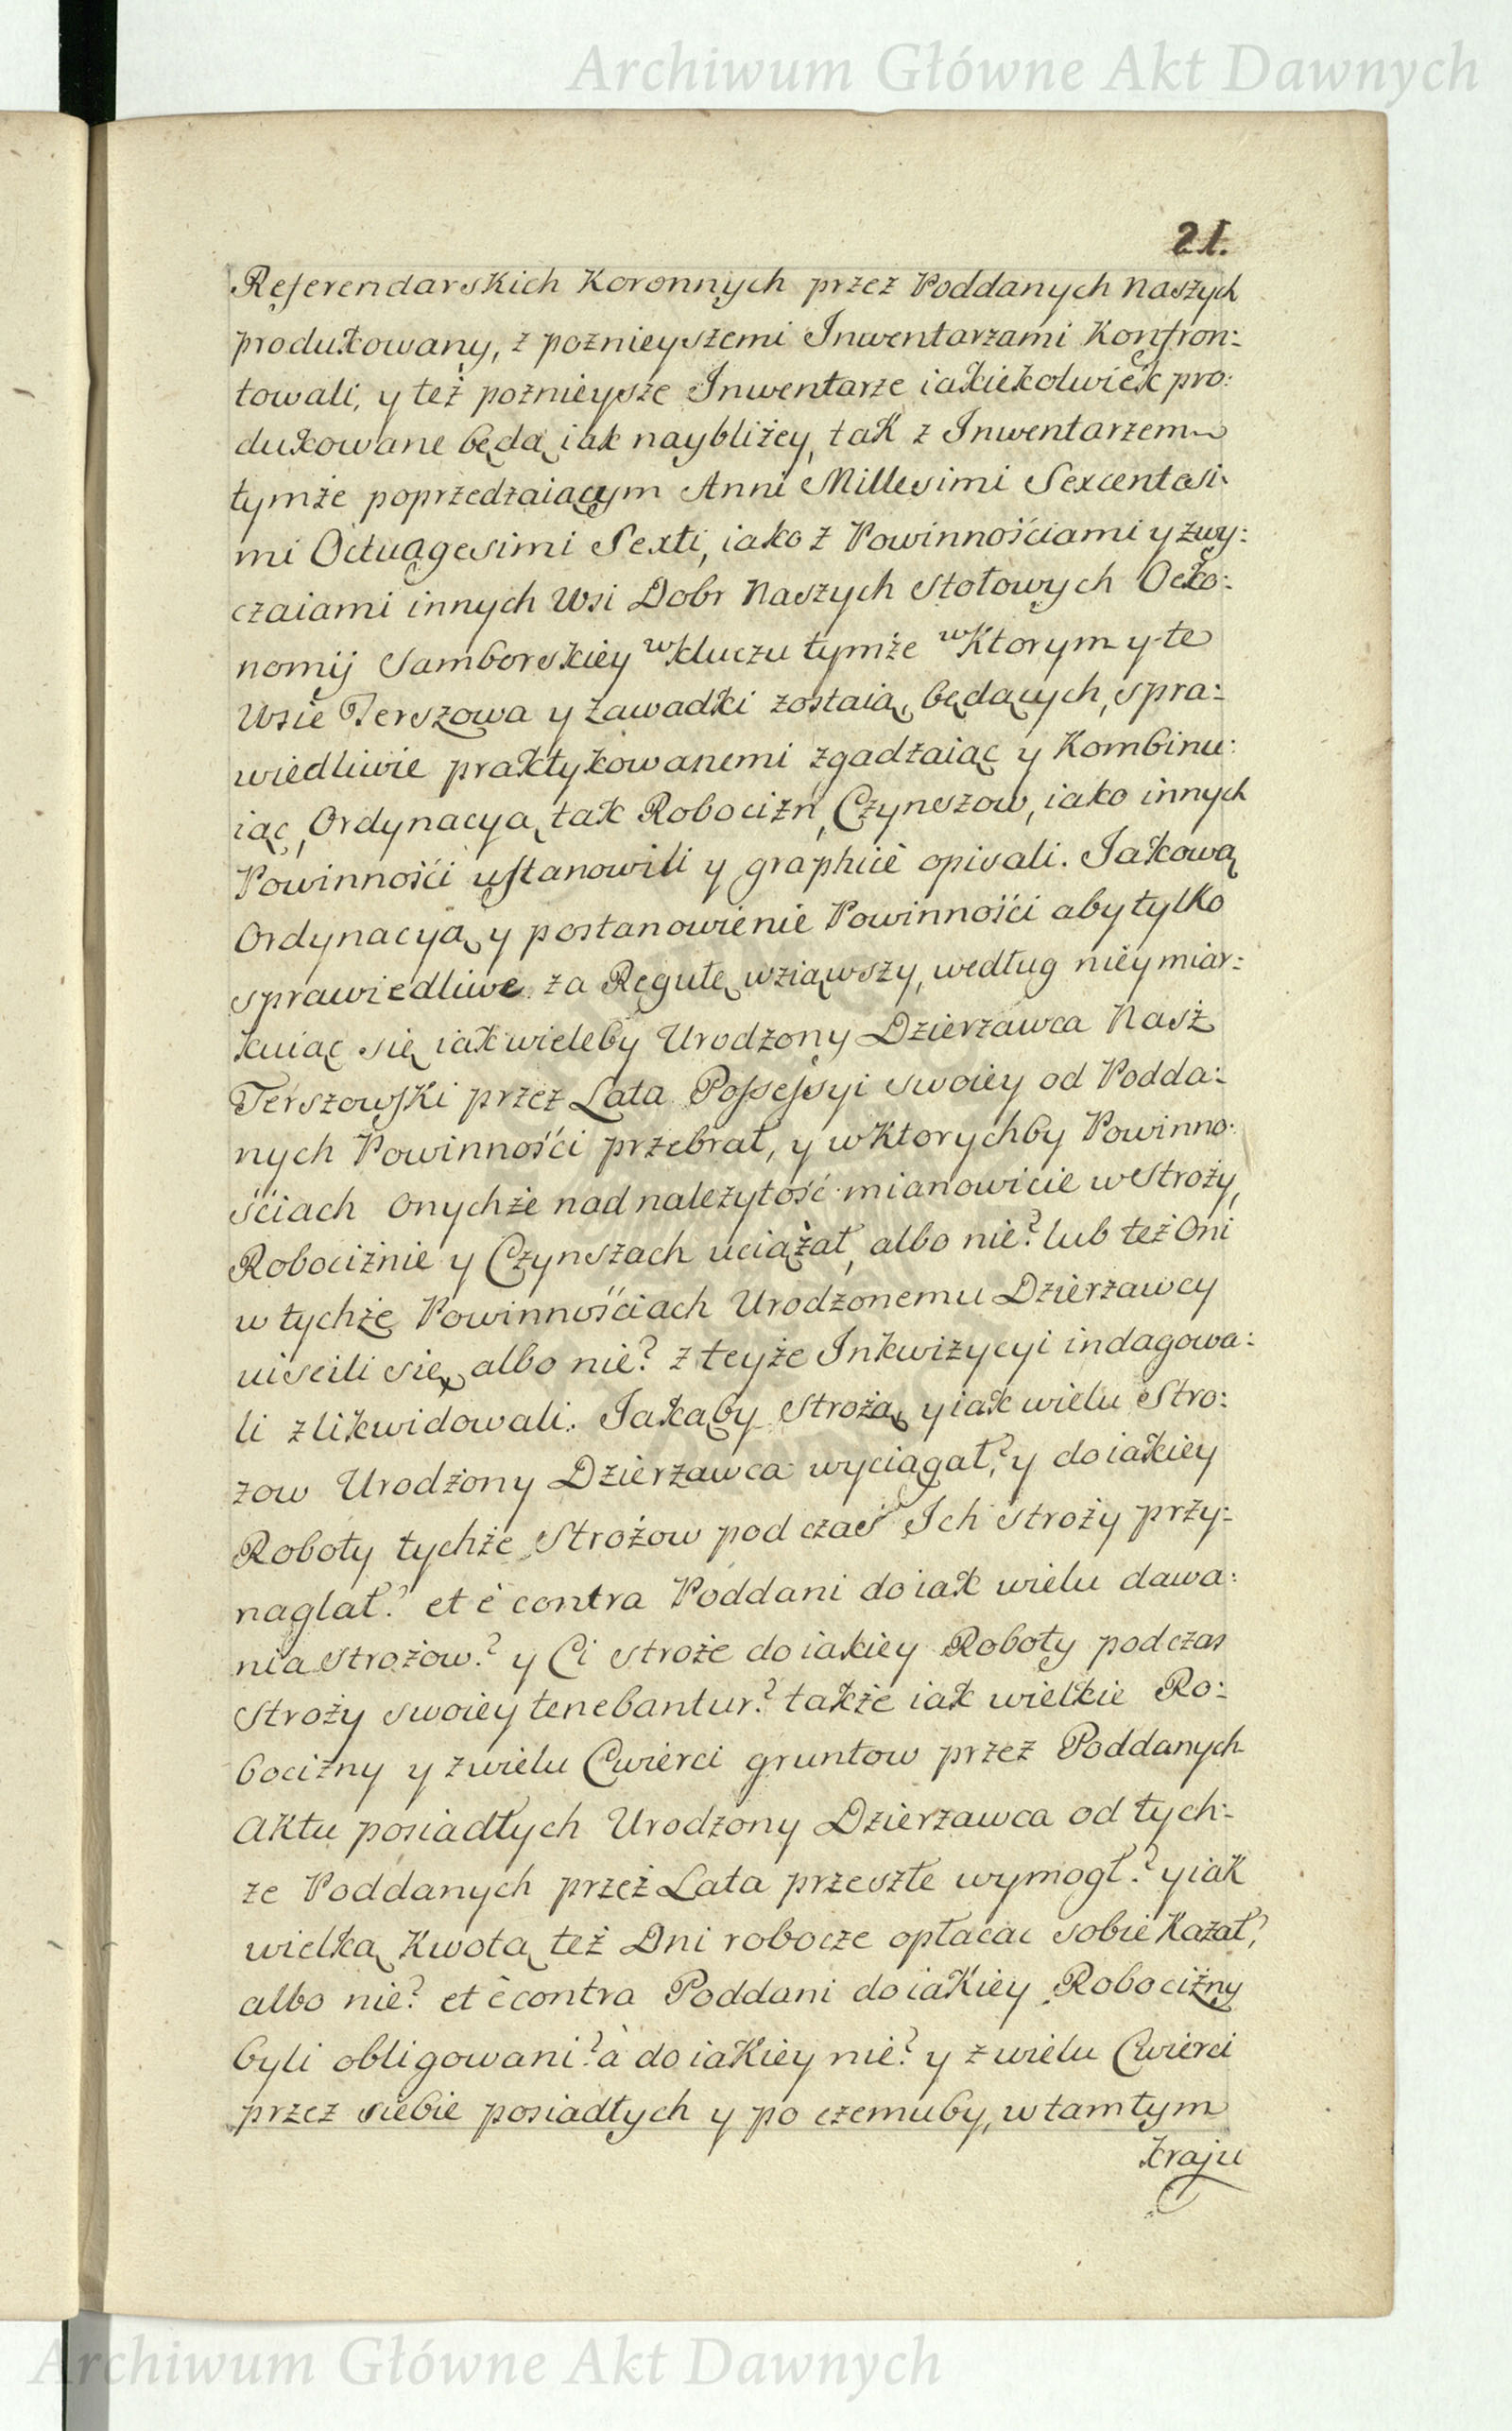 Archiwum Główne Akt Dawnych
21.
Referendarskich Koronnych przez Poddanych Naszych
produkowany, z poznieyszemi Inwentarzami Konfron:
towali, y też poznieysze Inwentarze iakiekolwiek pro:
dukowane będą iak naybliżey, tak z Inwentarzem
tymże poprzedzaiącym Anni Millesimi Sexcentesi:
mi Octuagesimi Sexti, iako z Powinnościami y zwy:
czaiami innych Wsi Dobr Naszych Stołowych Oeko:
nomij Samborskiey w kluczu tymże w Ktorym y te
Wsie Terszowa y Zawadki zostaią, będących, spra:
wiedliwie praktykowanemi zgadzaiąc y Kombinu:
iąc, Ordynacyą tak Robocizn, Czynszow, iako innych
Powinności ustanowili y graphicè opisali. Jakową
Ordynacyą y postanowienie Powinności aby tylko
sprawiedliwe za Regułę wziąwszy, według niey miar:
kuiąc się iak wieleby Urodzony Dzierzawca Nasz
Terszowski przez Lata Possessyi swoiey od Podda:
nych Powinności przebrał, y w Ktorychby Powinno:
ściach Onychże nad należytość mianowicie w Stroży,
Robociznie y Czynszach uciążał, albo nie? lub też Oni
w tychże Powinnościach Urodzonemu Dzierzawcy
uiscili się albo nie? z teyże Inkwizycyi indagowa:
li zlikwidowali. Jakąby Strożą y iak wielu Stro:
zow Urodzony Dzierzawca wyciągał? y do iakiey
Roboty tychże Strożow pod czas Ich Stroży przy:
naglał? et è contra Poddani do iak wielu dawa:
nia Strożow? y Ci Stroże do iakiey Roboty podczas
Stroży swoiey tenebantur? także iak wielkie Ro:
bocizny y z wielu Cwierci gruntow przez Poddanych
Aktu posiadłych Urodzony Dzierzawca od tych:
ze Poddanych przez Lata przeszłe wymogł? y iak
wielką Kwotą też Dni robocze opłacac sobie Kazał?
albo nie? et è contra Poddani do iakiey Robocizny
byli obligowani? à do iakiey nie? y z wielu Cwierci
przez siebie posiadłych y po czemuby, w tamtym
kraju
Archiwum Główne Akt Dawnych